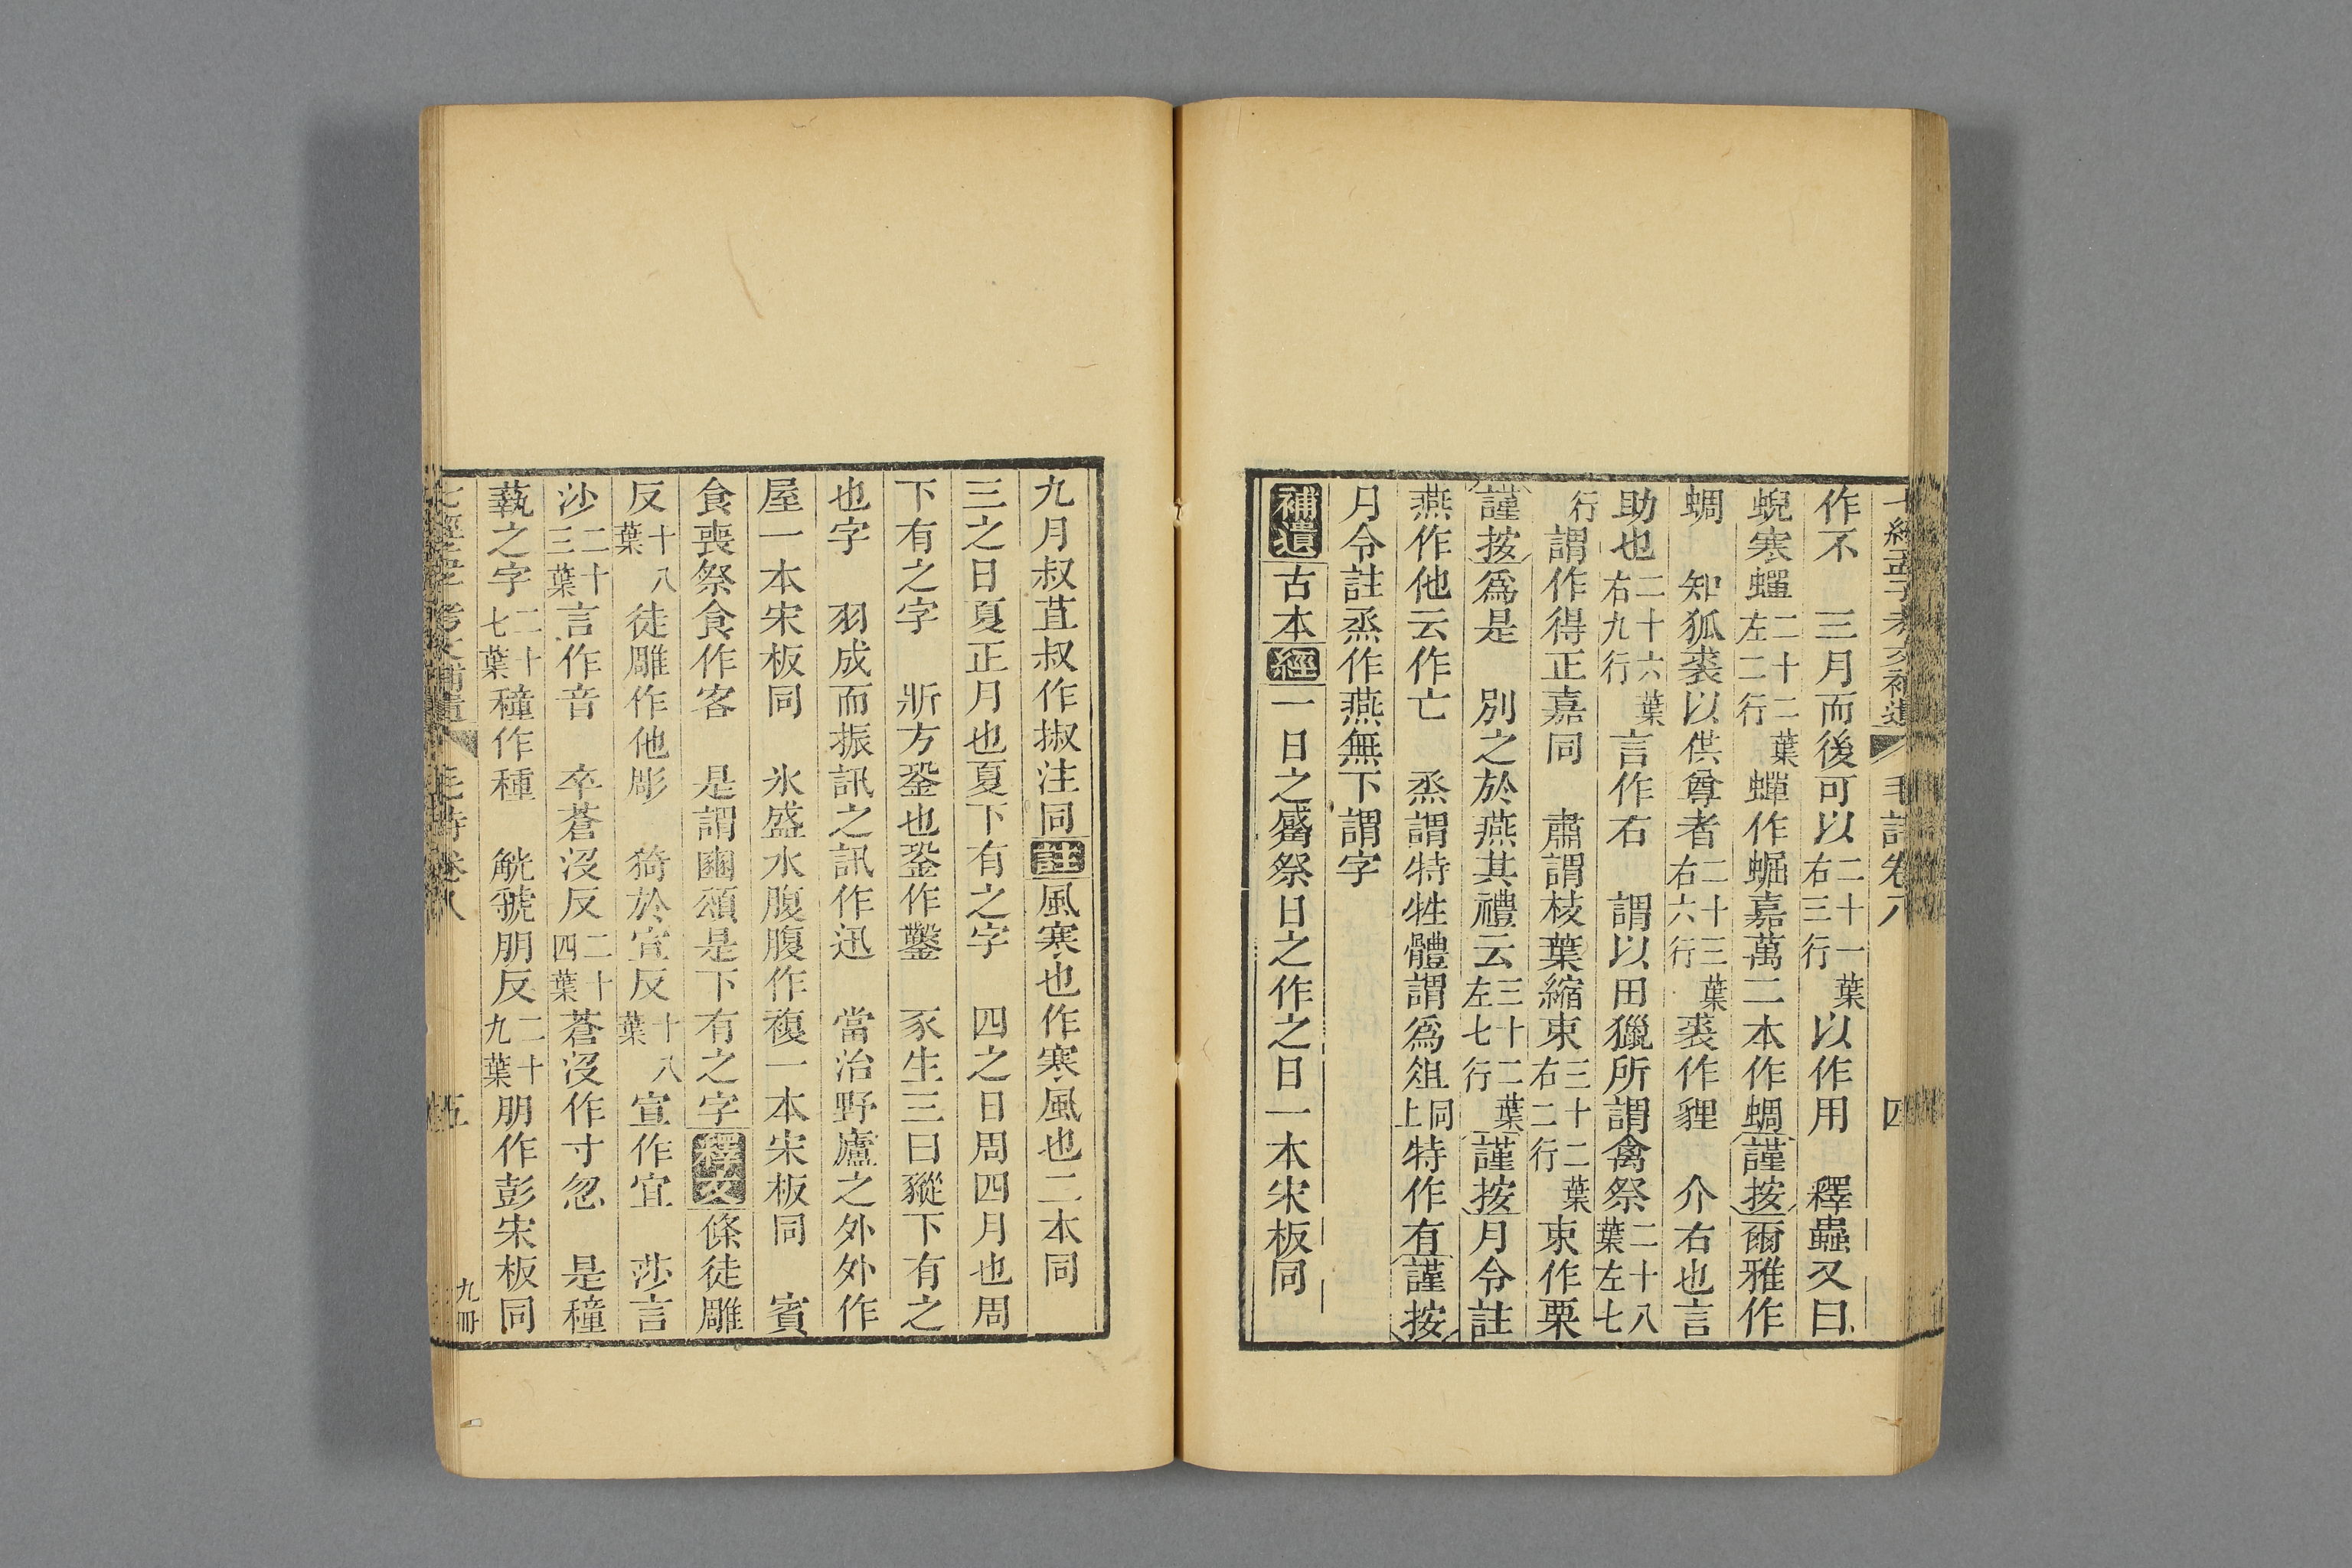 七經孟子考文補遺 毛詩卷八 四
作不　三月而後可以二十一葉右三行以作用　釋蟲又曰
蜺寒蠷二十二葉左二行蟬作蝘嘉萬二本作蜩謹按爾雅作
蜩　知狐裘以供尊者二十三葉右六行裘作貍　介右也言
助也二十六葉右九行言作右　謂以田獵所謂禽祭二十八葉左七
行謂作得正嘉同　肅謂枝葉縮束三十二葉右二行束作栗
謹按爲是　別之於燕其禮云三十二葉左七行謹按月令註
燕作他云作亡　烝謂特牲體謂爲俎同上特作有謹按
月令註烝作燕無下謂字
補遺古本經一日之觱祭日之作之日一本宋板同
九月叔苴叔作掓注同註風寒也作寒風也二本同
三之日夏正月也夏下有之字　四之日周四月也周
下有之字　斨方銎也銎作鑿　豕生三曰豵下有之
也字　羽成而振訊之訊作迅　當治野廬之外外作
屋一本宋板同　氷盛水腹腹作複一本宋板同　賓
食喪祭食作客　是謂豳頌是下有之字釋文條徒雕
反十八葉徒雕作他彫　猗於宜反十八葉宣作宜　莎言
沙二十三葉言作音　卒蒼沒反二十四葉蒼沒作寸忽　是穜
蓺之字二十七葉穜作種　觥虢朋反二十九葉朋作彭宋板同
七經孟子考文補遺 毛詩卷八 五 九冊